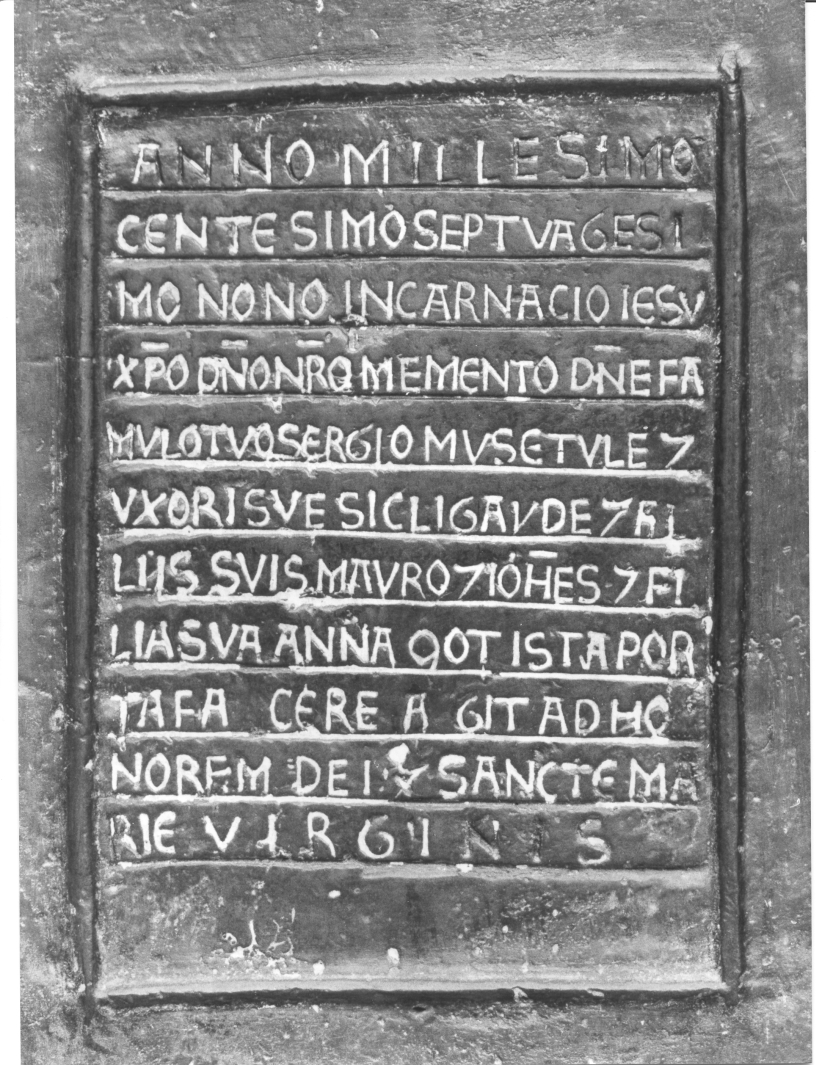 ANNO MILLESIMO
CENTESIMO SEPTVAGESI
MO NONO INCARNACIO IESV
XP̅O DN̅O NR̅O MEMENTO DN̅E FA
MVLO TVO SERGIO MVSETVLE 7
VXORI SVE SICLIGAVDE 7 FI
LIIS SVIS MAVRO 7 IOH̅ES 7 FI
LIA SVA ANNA QOT ISTA POR
TA FACERE AGIT AD HO
NOREM DEI 7 SANCTE MA
RIE VIRGINIS